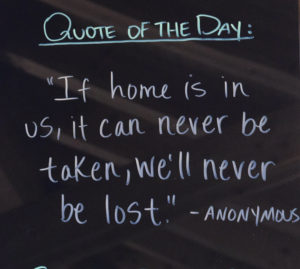 Quote of the Day:
"If home is in
us, it can never be
taken, we'll never
be lost." - Anonymous